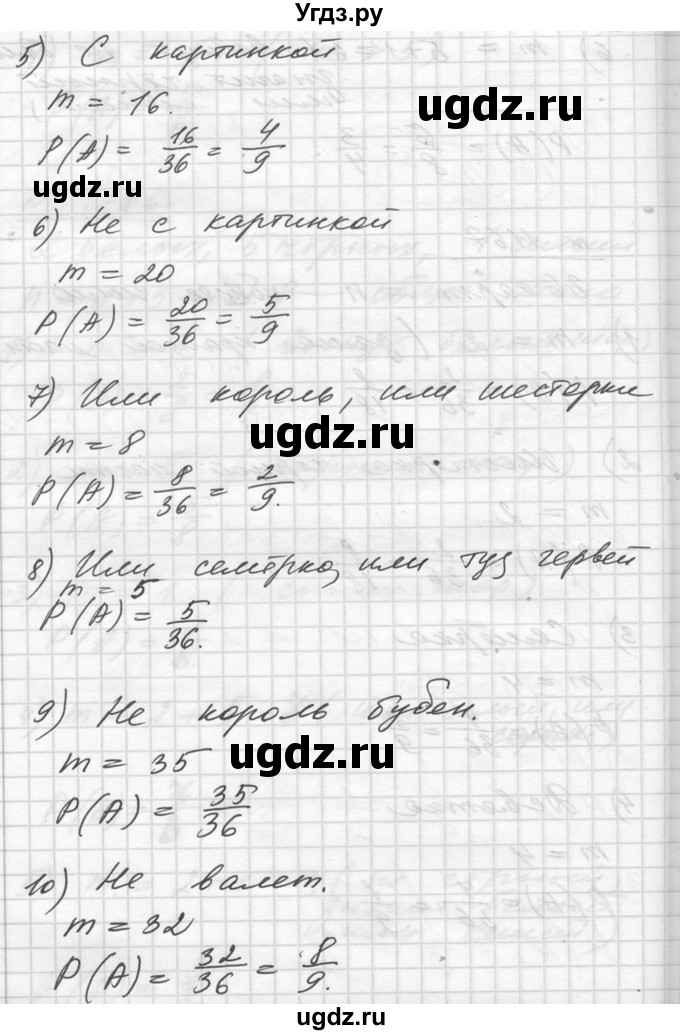 Угдз.ру
5) С картинкой
m = 16.
P(A) = 16/36 = 4/9
ugdz.ru
ugdz.ru
6) Не с картинкой
m = 20
P(A) = 20/36 = 5/9
ugdz.ru
7) Или король, или шестерки
m = 8
ugdz.ru
P(A) = 8/36 = 2/9.
8) Или семёрка, или туз червей
m = 5
P(A) = 5/36.
ugdz.ru
9) Не король бубен.
m = 35
ugdz.ru
P(A) = 35/36
10) Не валет.
m = 32
P(A) = 32/36 = 8/9.
ugdz.ru
ugdz.ru